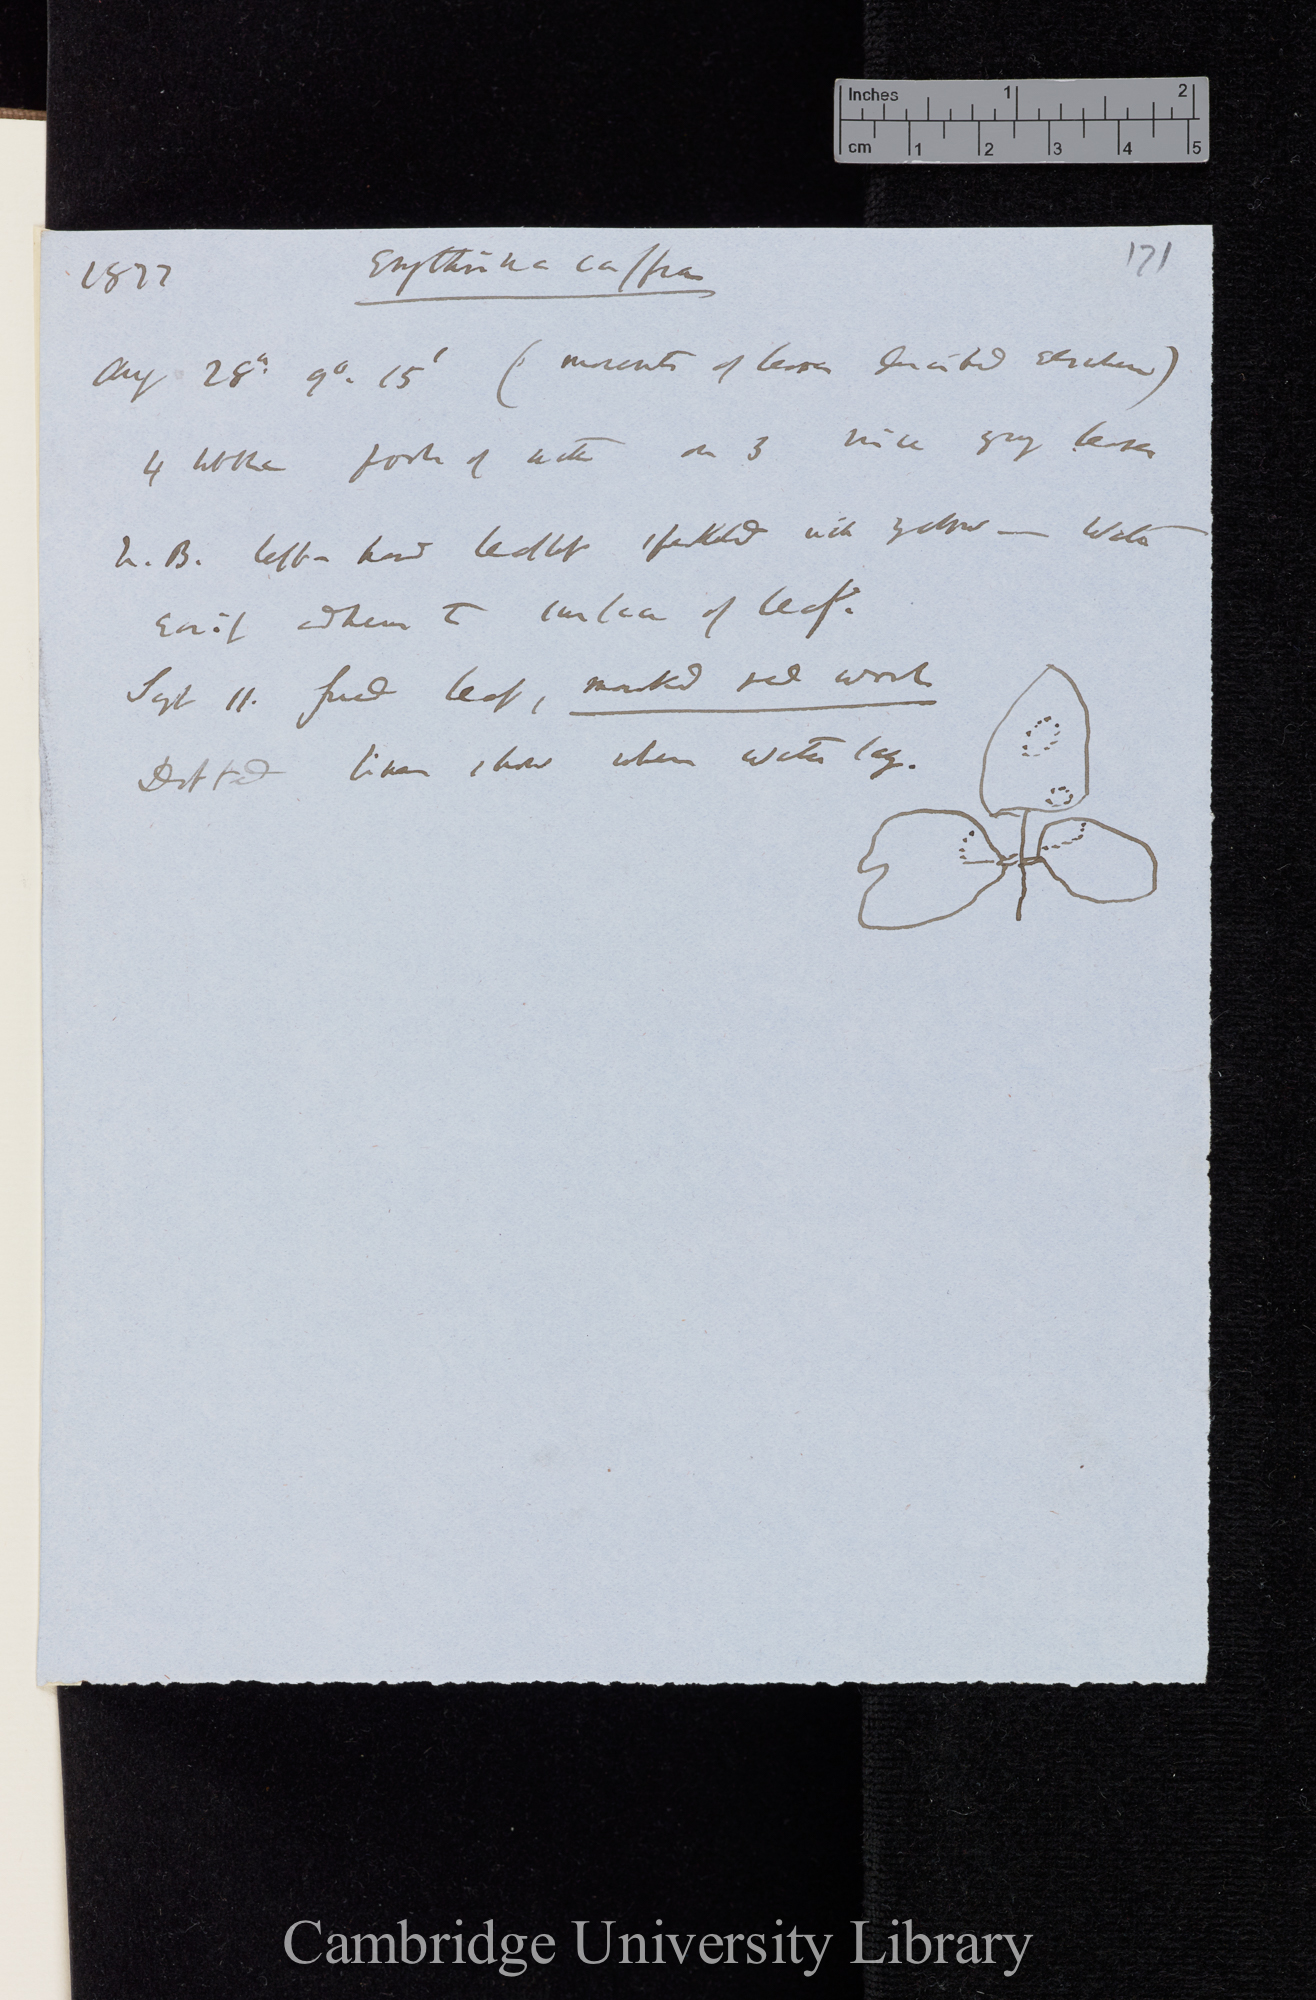 Inches 1 2
cm 1 2 3 4 5
1877 Erythrina caffra 171
Aug 28th 9° 15' (movements of leaves described elsewhere)
4 little pools of water on 3 nice young leaves
N.B. left-hand leaflet speckled with yellow — Water
easily adheres to surface of leaf.
Sept 11. leaf, marked red wool
Dotted lines show where water lay.
Cambridge University Library